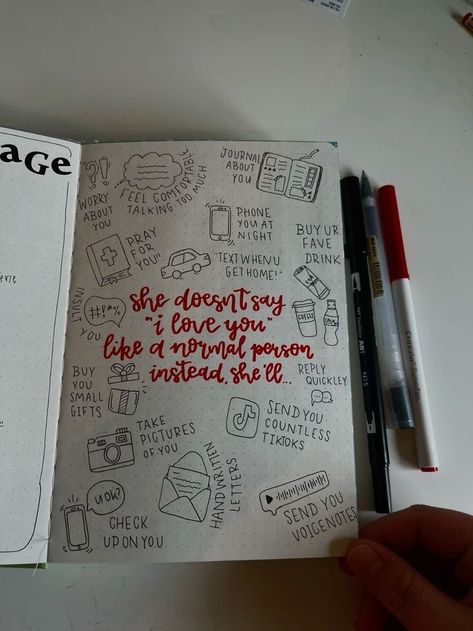 aGe
?!
WORRY
ABOUT
YOU
FEEL COMFORTABLE
TALKING TOO MUCH
JOURNAL
ABOUT
YOU
PRAY
FOR
YOU"
PHONE
YOU AT
NIGHT
"TEXT WHEN U
GET HOME!"
BUY UR
FAVE
DRINK
INSULT
YOU
#!*%
she doesn't say
"i love you"
like a normal person
instead, she'll...
COFFEE
BUY
YOU
SMALL
GIFTS
REPLY
QUICKLEY
TAKE
PICTURES
OF YOU
SEND YOU
COUNTLESS
TIKTOKS
HANDWRITTEN
LETTERS
u ok?
CHECK
UP ON YOU
SEND YOU
VOICENOTES